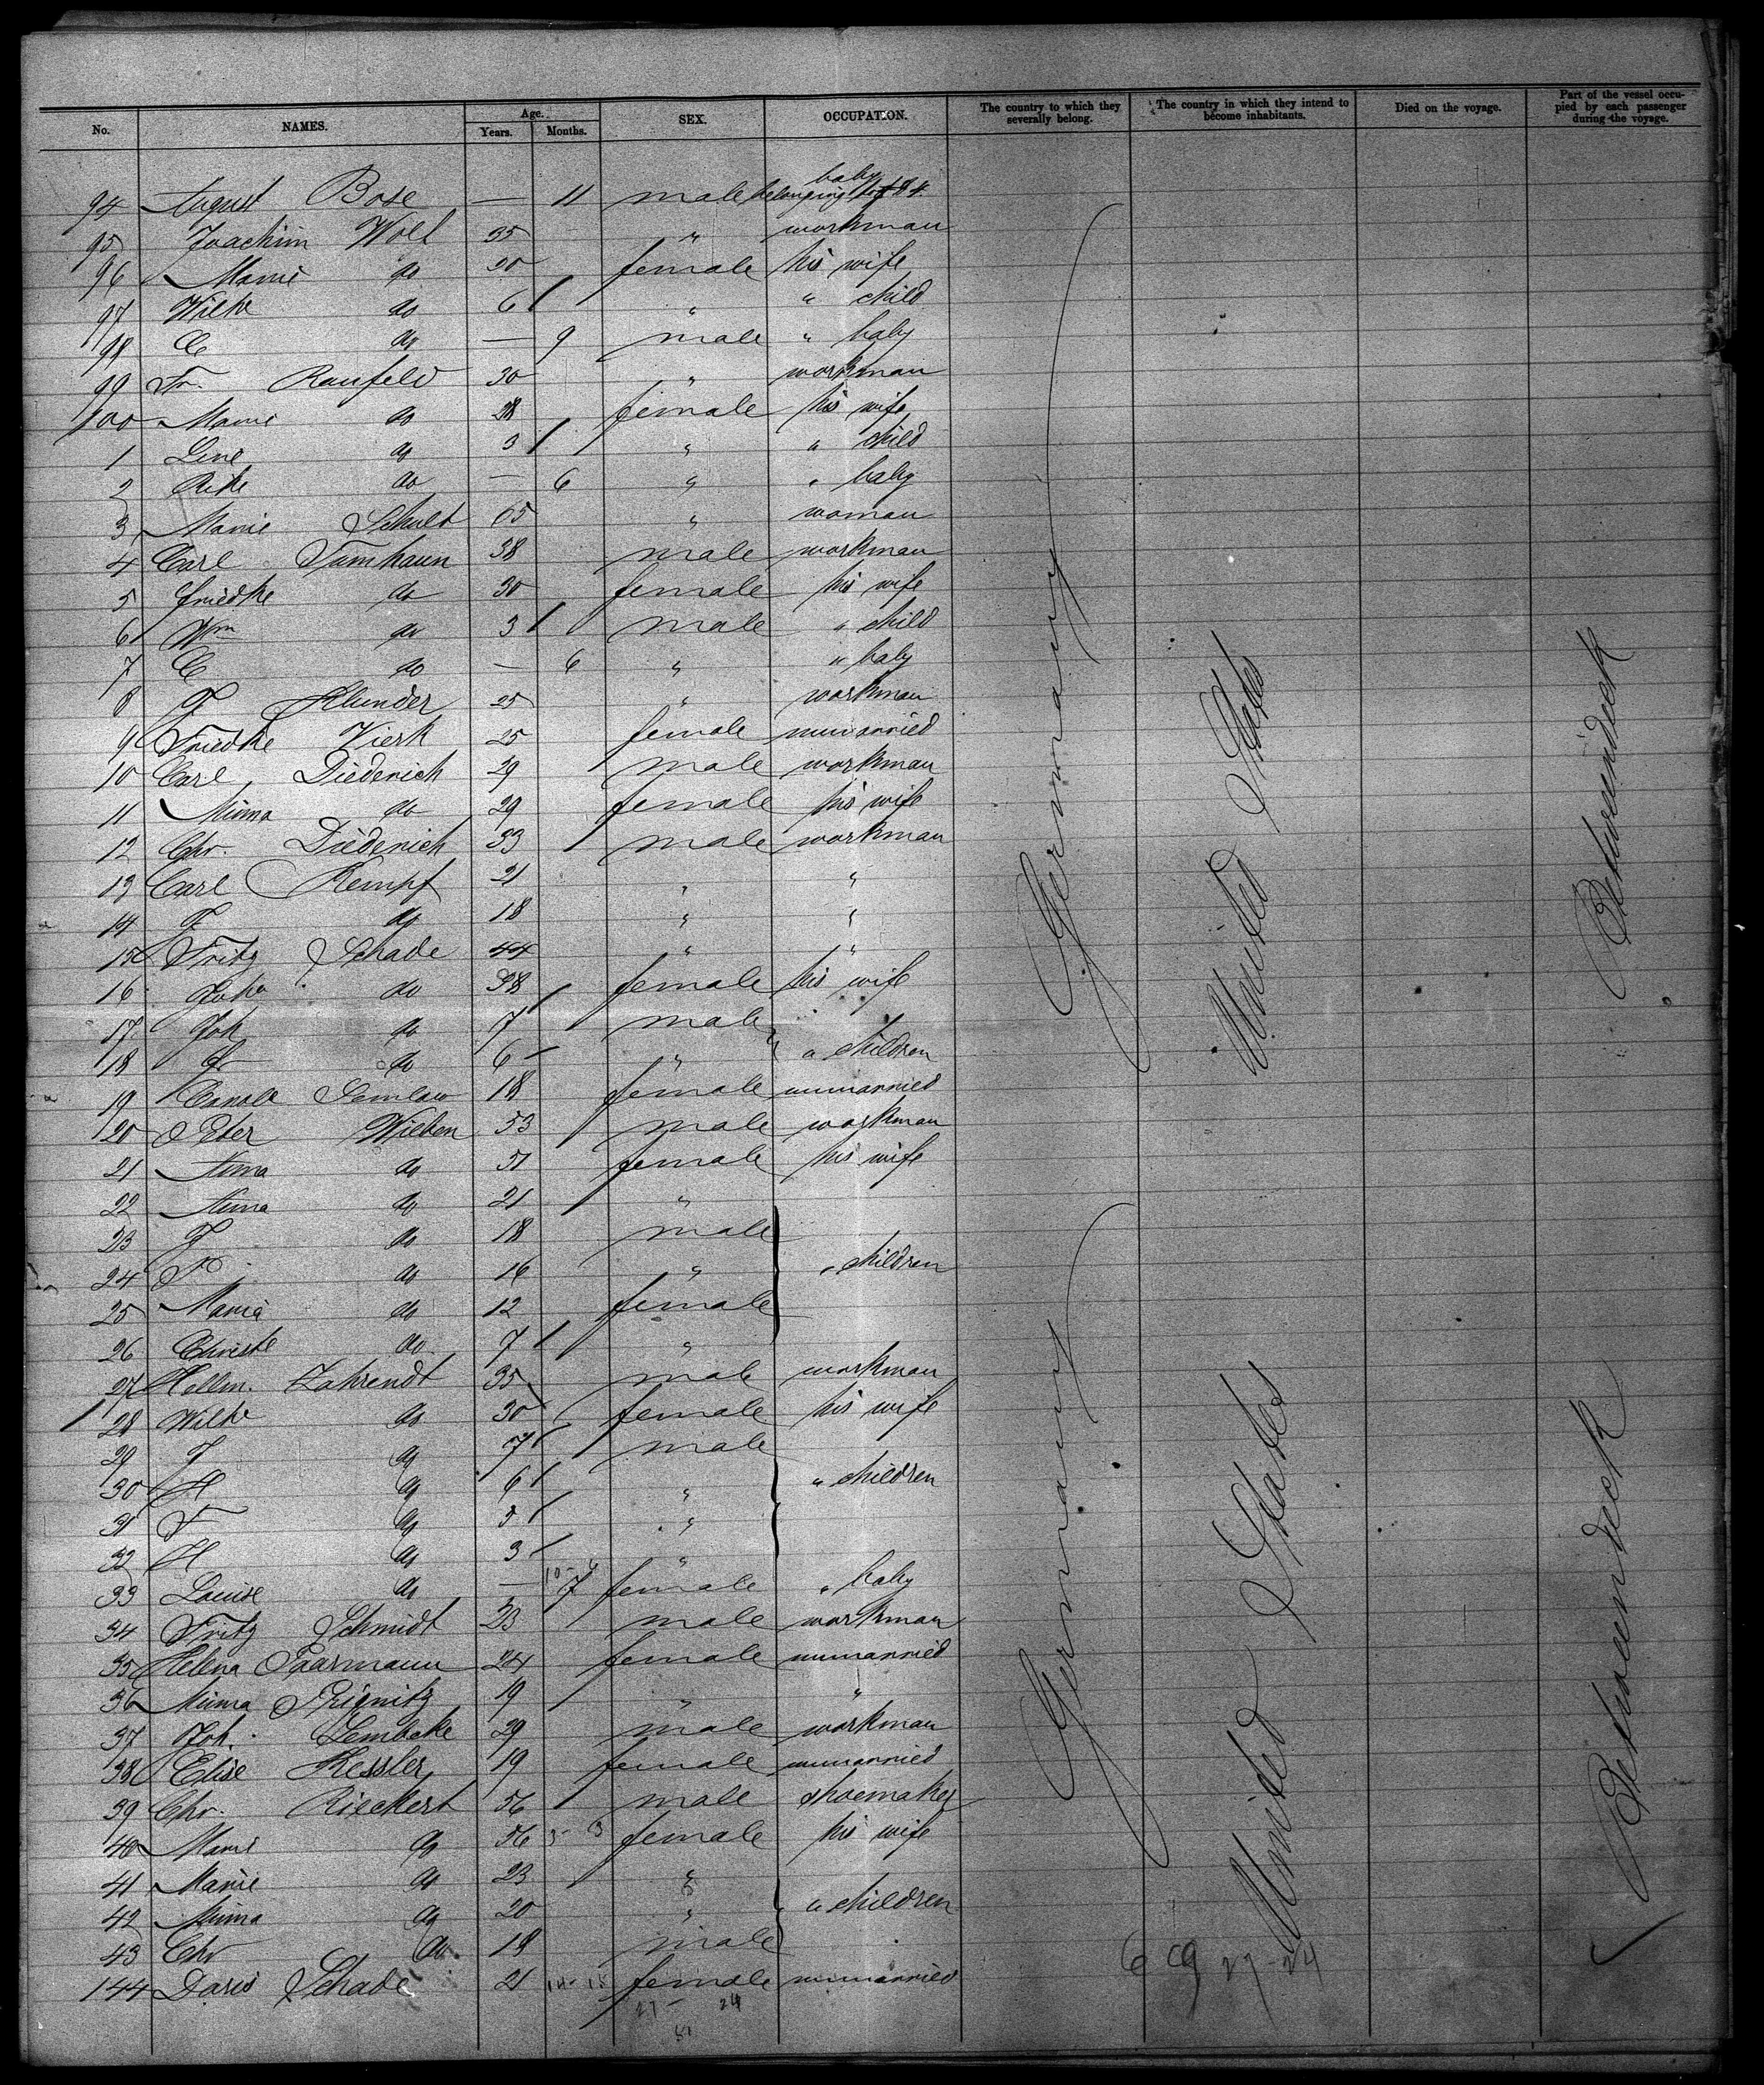 No. NAMES. Age. Years. Months. SEX. OCCUPATION. The country to which they severally belong. The country in which they intend to become inhabitants. Died on the voyage. Part of the vessel occupied by each passenger during the voyage.
baby
94 August Bose — 11 male belonging to 84.
95 Joachim Wolt 35 " workman
96 Marie do 30 female his wife
97 Wilhe do 6 " " child
98 C do — 9 male " baby
99 Fr. Ranfeld 30 " workman
100 Marie do 28 female his wife
1 Line do 3 " " child
2 Rike do — 6 " " baby
3 Marie Schult 65 " woman
4 Carl Tumhaun 38 male workman
5 friedke do 30 female his wife
6 Wm do 3 male " child
7 C do — 6 " " baby
8 F Klunder 25 " workman
9 Friedke Vierk 25 female unmarried
10 Carl Diederich 29 male workman
11 Minna do 29 female his wife
12 Chr. Diederich 33 male workman
13 Carl Kempf 21 " "
14 F do 18 " "
15 Fritz Schade 44 " "
16 do 38 female his wife
17 Joh do 7 male
18 Fr do 6 " " children
19 Semlow 18 female unmarried
20 Peter Wieben 53 male workman
21 Anna do 51 female his wife
22 Anna do 21 "
23 F do 18 male
24 P do 16 " " children
25 Maria do 12 female
26 Christe do 7 "
27 Hellm. Zahrendt 35 male workman
28 Wilhe do 30 female his wife
29 J do 7 male
30 H do 6 " " children
31 F do 5 "
32 H do 3 "
33 Louise do — 7 female " baby
34 Fritz Schmidt 23 male workman
35 Helena Paarmann 24 female unmarried
36 Minna Prignitz 19 " "
37 Joh. Lembcke 29 male workman
38 Elise Kessler 19 female unmarried
39 Chr. Rieckert 56 male shoemaker
40 Marie do 56 female his wife
41 Marie do 23 "
42 Minna do 20 " " children
43 Chr do 18 male
144 Doris Schade 21 female unmarried
Germany United States Betweendeck
Germany United States Betweendeck
6 cg 27-24
27 - 24
51